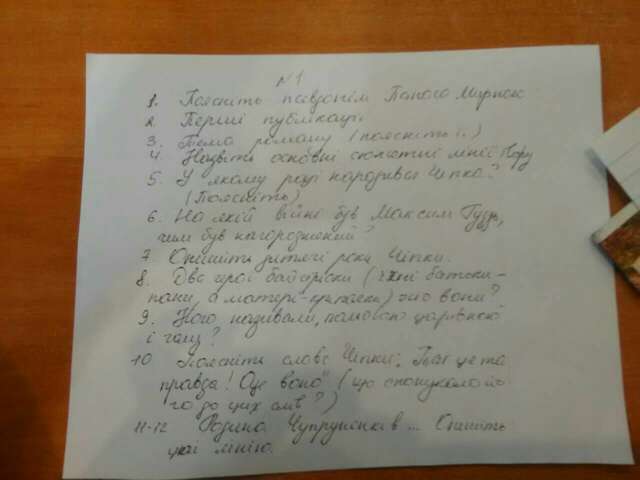 №1
1. Поясніть псевдонім Панаса Мирного
2. Перші публікації
3. Тема роману (поясніть її)
4. Назвіть основні сюжетні лінії твору
5. У якому році народився Чіпка?
(Поясніть)
6. На якій війні був Максим Гудзь,
чим був нагороджений?
7. Опишіть дитячі роки Чіпки.
8. Два герої байстрюки (їхні батьки-
пани, а матері-кріпачки) хто вони?
9. Кого називали польовою царівною
і чому?
10 Поясніть слова Чіпки: "Так це та
правда! Оце вона" (що спонукало йо
го до цих слів?)
11-12 Родина Чупруненків ... Опишіть
цю лінію.